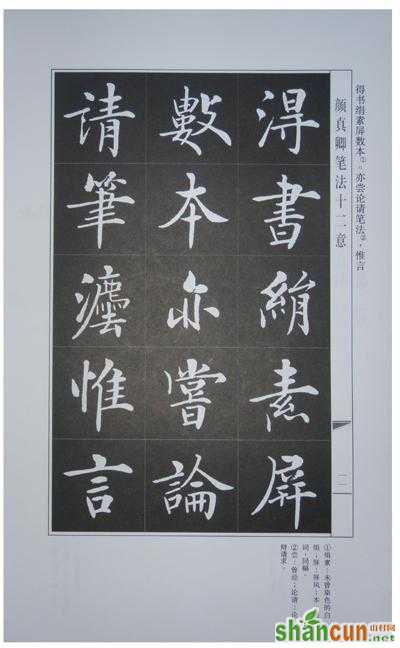 得书绢素屏数本①。亦尝论请笔法②，惟言
颜真卿笔法十二意
二
得書絹素屏
數本亦嘗論
請筆灋惟言
①绢素：未曾染色的白
绢；屏：屏风；本：
词，同幅。
②尝：曾经；论请：论
辩请求。
shancun
山村网
.net